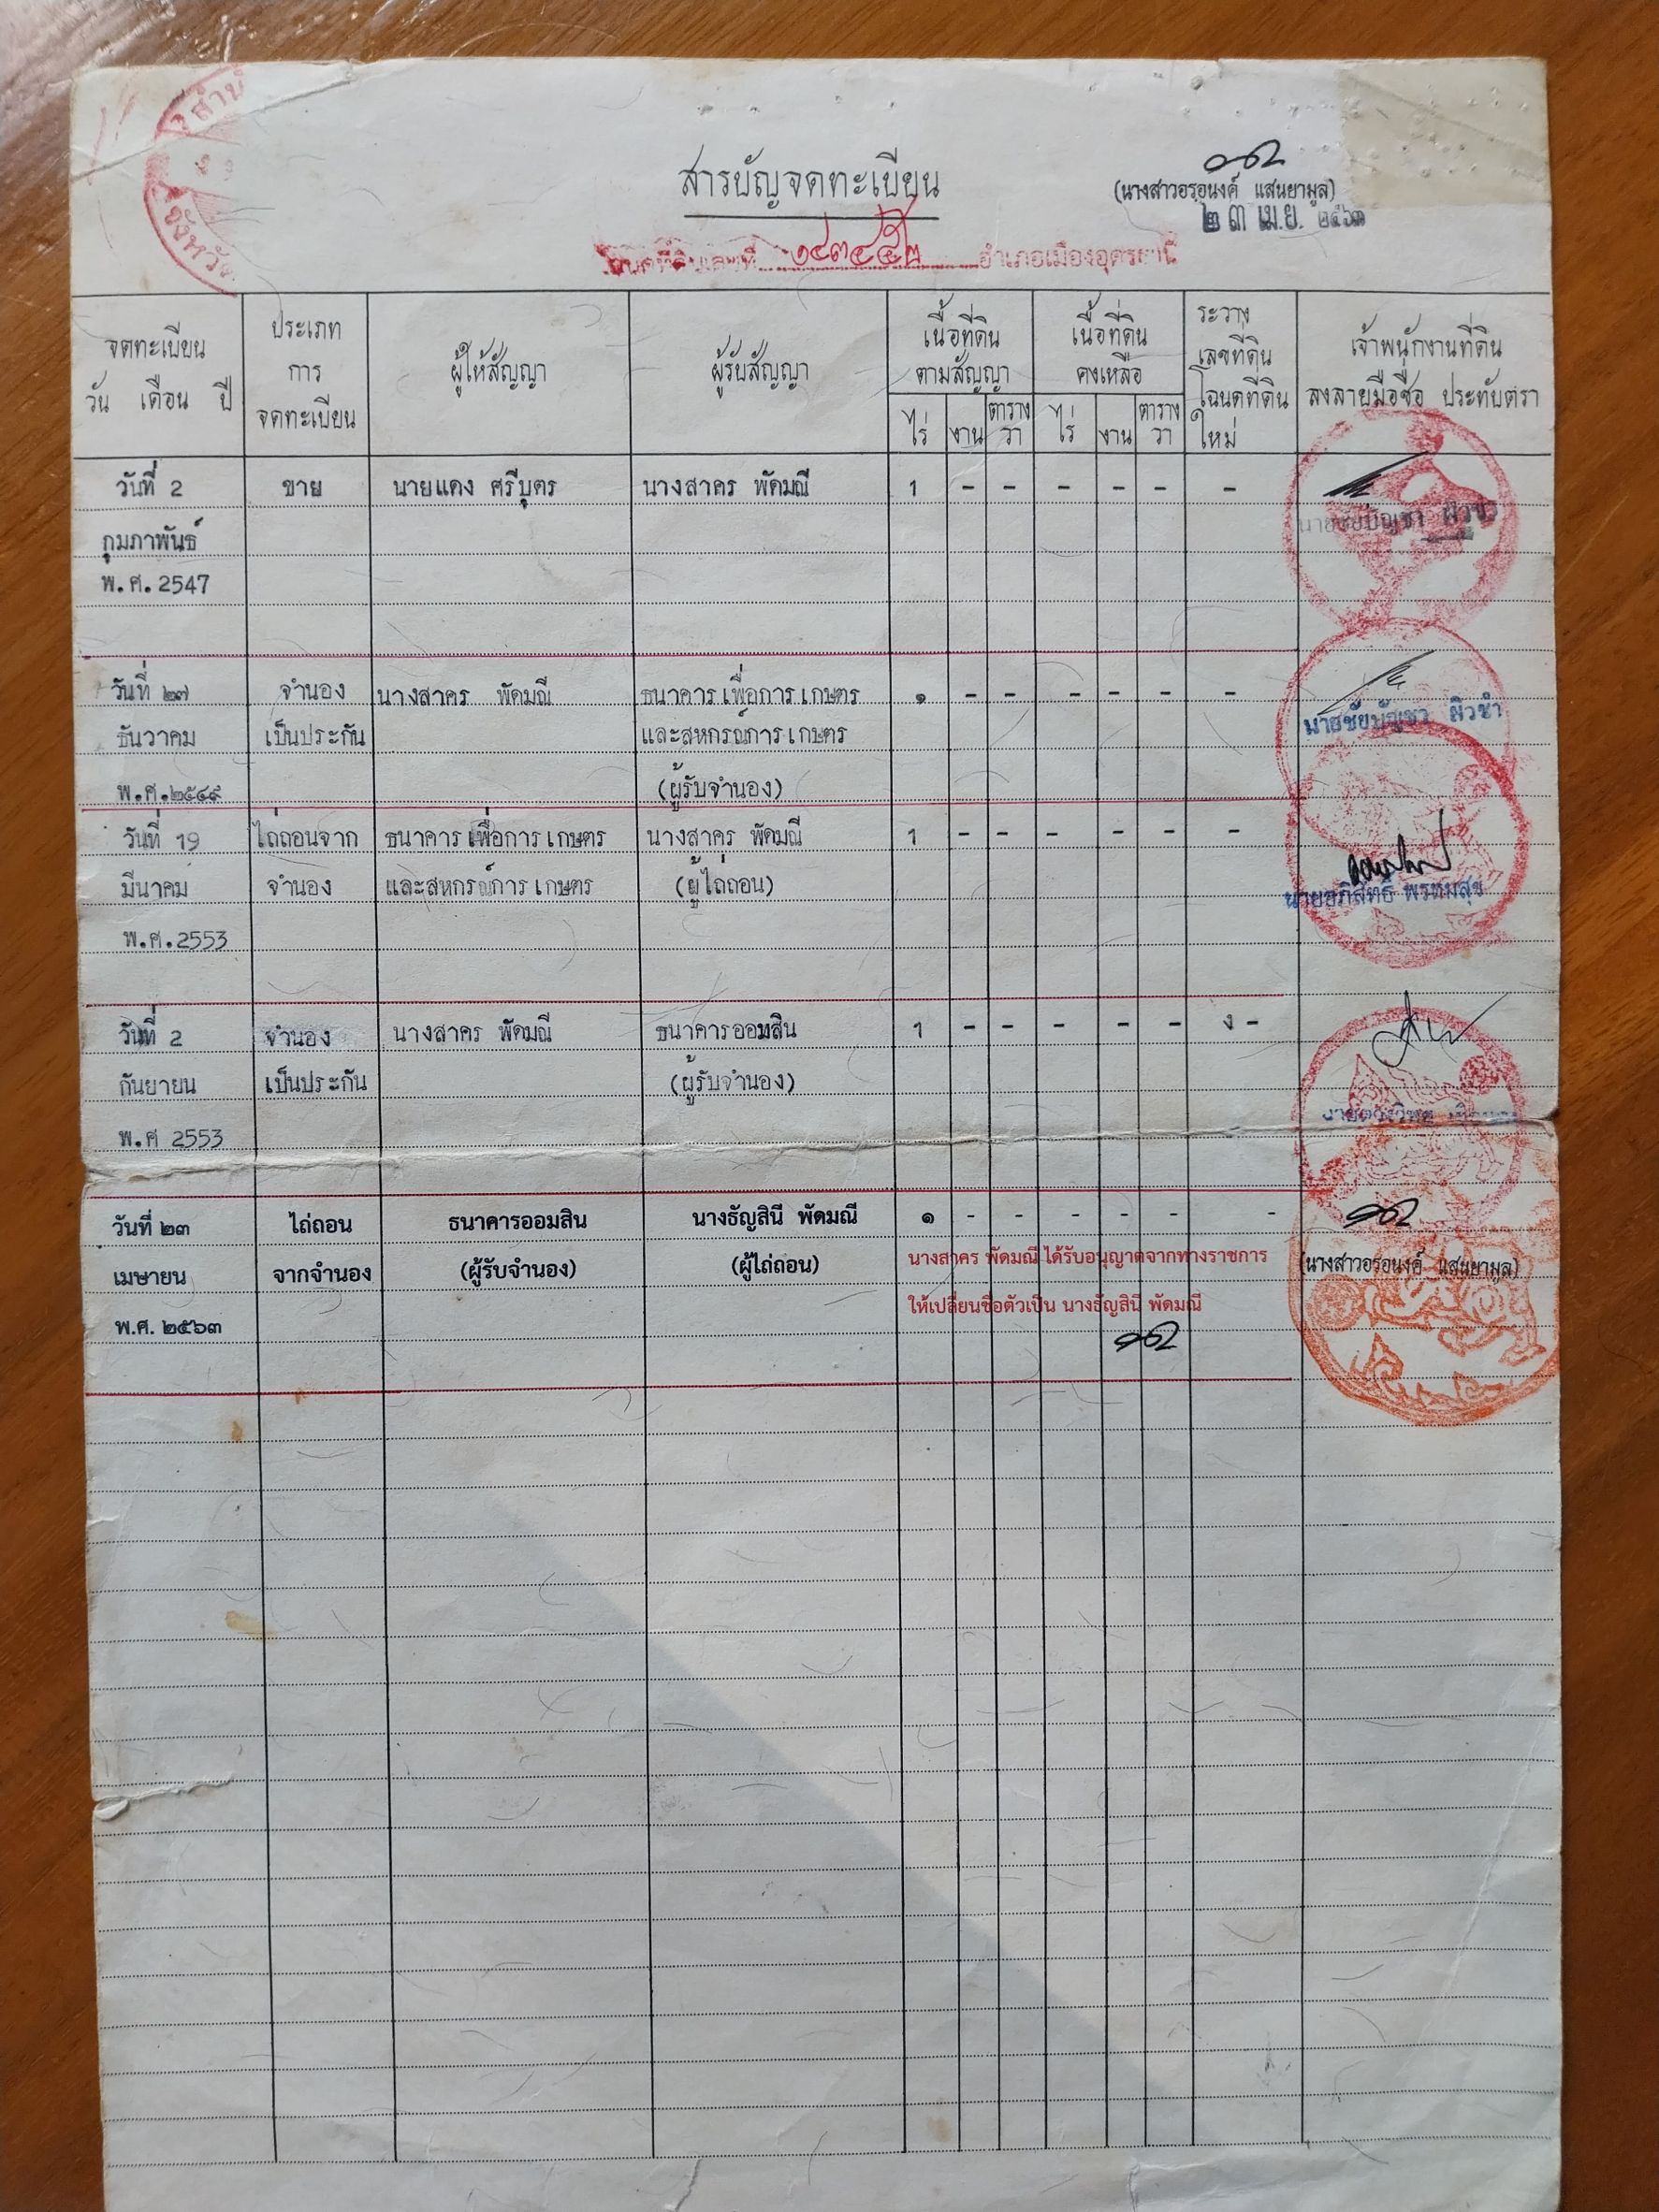 สารบัญจดทะเบียน
(นางสาวอรอนงค์ แสนยามูล)
๒๓ เม.ย. ๒๕๖๓
โฉนดที่ดินเลขที่ อำเภอเมืองอุดรธานี
จังหวัด
จดทะเบียน
วัน เดือน ปี
ประเภท
การ
จดทะเบียน
ผู้ให้สัญญา
ผู้รับสัญญา
เนื้อที่ดิน
ตามสัญญา
ไร่ งาน ตาราง
วา
เนื้อที่ดิน
คงเหลือ
ไร่ งาน ตาราง
วา
ระวาง
เลขที่ดิน
โฉนดที่ดิน
ใหม่
เจ้าพนักงานที่ดิน
ลงลายมือชื่อ ประทับตรา
วันที่ 2 ขาย นายแดง ศรีบุตร นางสาคร พัดมณี 1 - - - - - -
กุมภาพันธ์
พ.ศ.2547
นายชัยบัญชา ผิวขำ
วันที่ ๒๗ จำนอง นางสาคร พัดมณี ธนาคารเพื่อการเกษตร ๑ - - - - - -
ธันวาคม เป็นประกัน และสหกรณ์การเกษตร
พ.ศ.๒๕๔๙ (ผู้รับจำนอง)
นายชัยบัญชา ผิวขำ
วันที่ 19 ไถ่ถอนจาก ธนาคารเพื่อการเกษตร นางสาคร พัดมณี 1 - - - - - -
มีนาคม จำนอง และสหกรณ์การเกษตร (ผู้ไถ่ถอน)
พ.ศ.2553
นายอภิสิทธิ์ พรหมสุข
วันที่ 2 จำนอง นางสาคร พัดมณี ธนาคารออมสิน 1 - - - - - -
กันยายน เป็นประกัน (ผู้รับจำนอง)
พ.ศ 2553
วันที่ ๒๓ ไถ่ถอน ธนาคารออมสิน นางธัญสินี พัดมณี ๑ - - - - - -
เมษายน จากจำนอง (ผู้รับจำนอง) (ผู้ไถ่ถอน) นางสาคร พัดมณี ได้รับอนุญาตจากทางราชการ (นางสาวอรอนงค์ แสนยามูล)
พ.ศ. ๒๕๖๓ ให้เปลี่ยนชื่อตัวเป็น นางธัญสินี พัดมณี